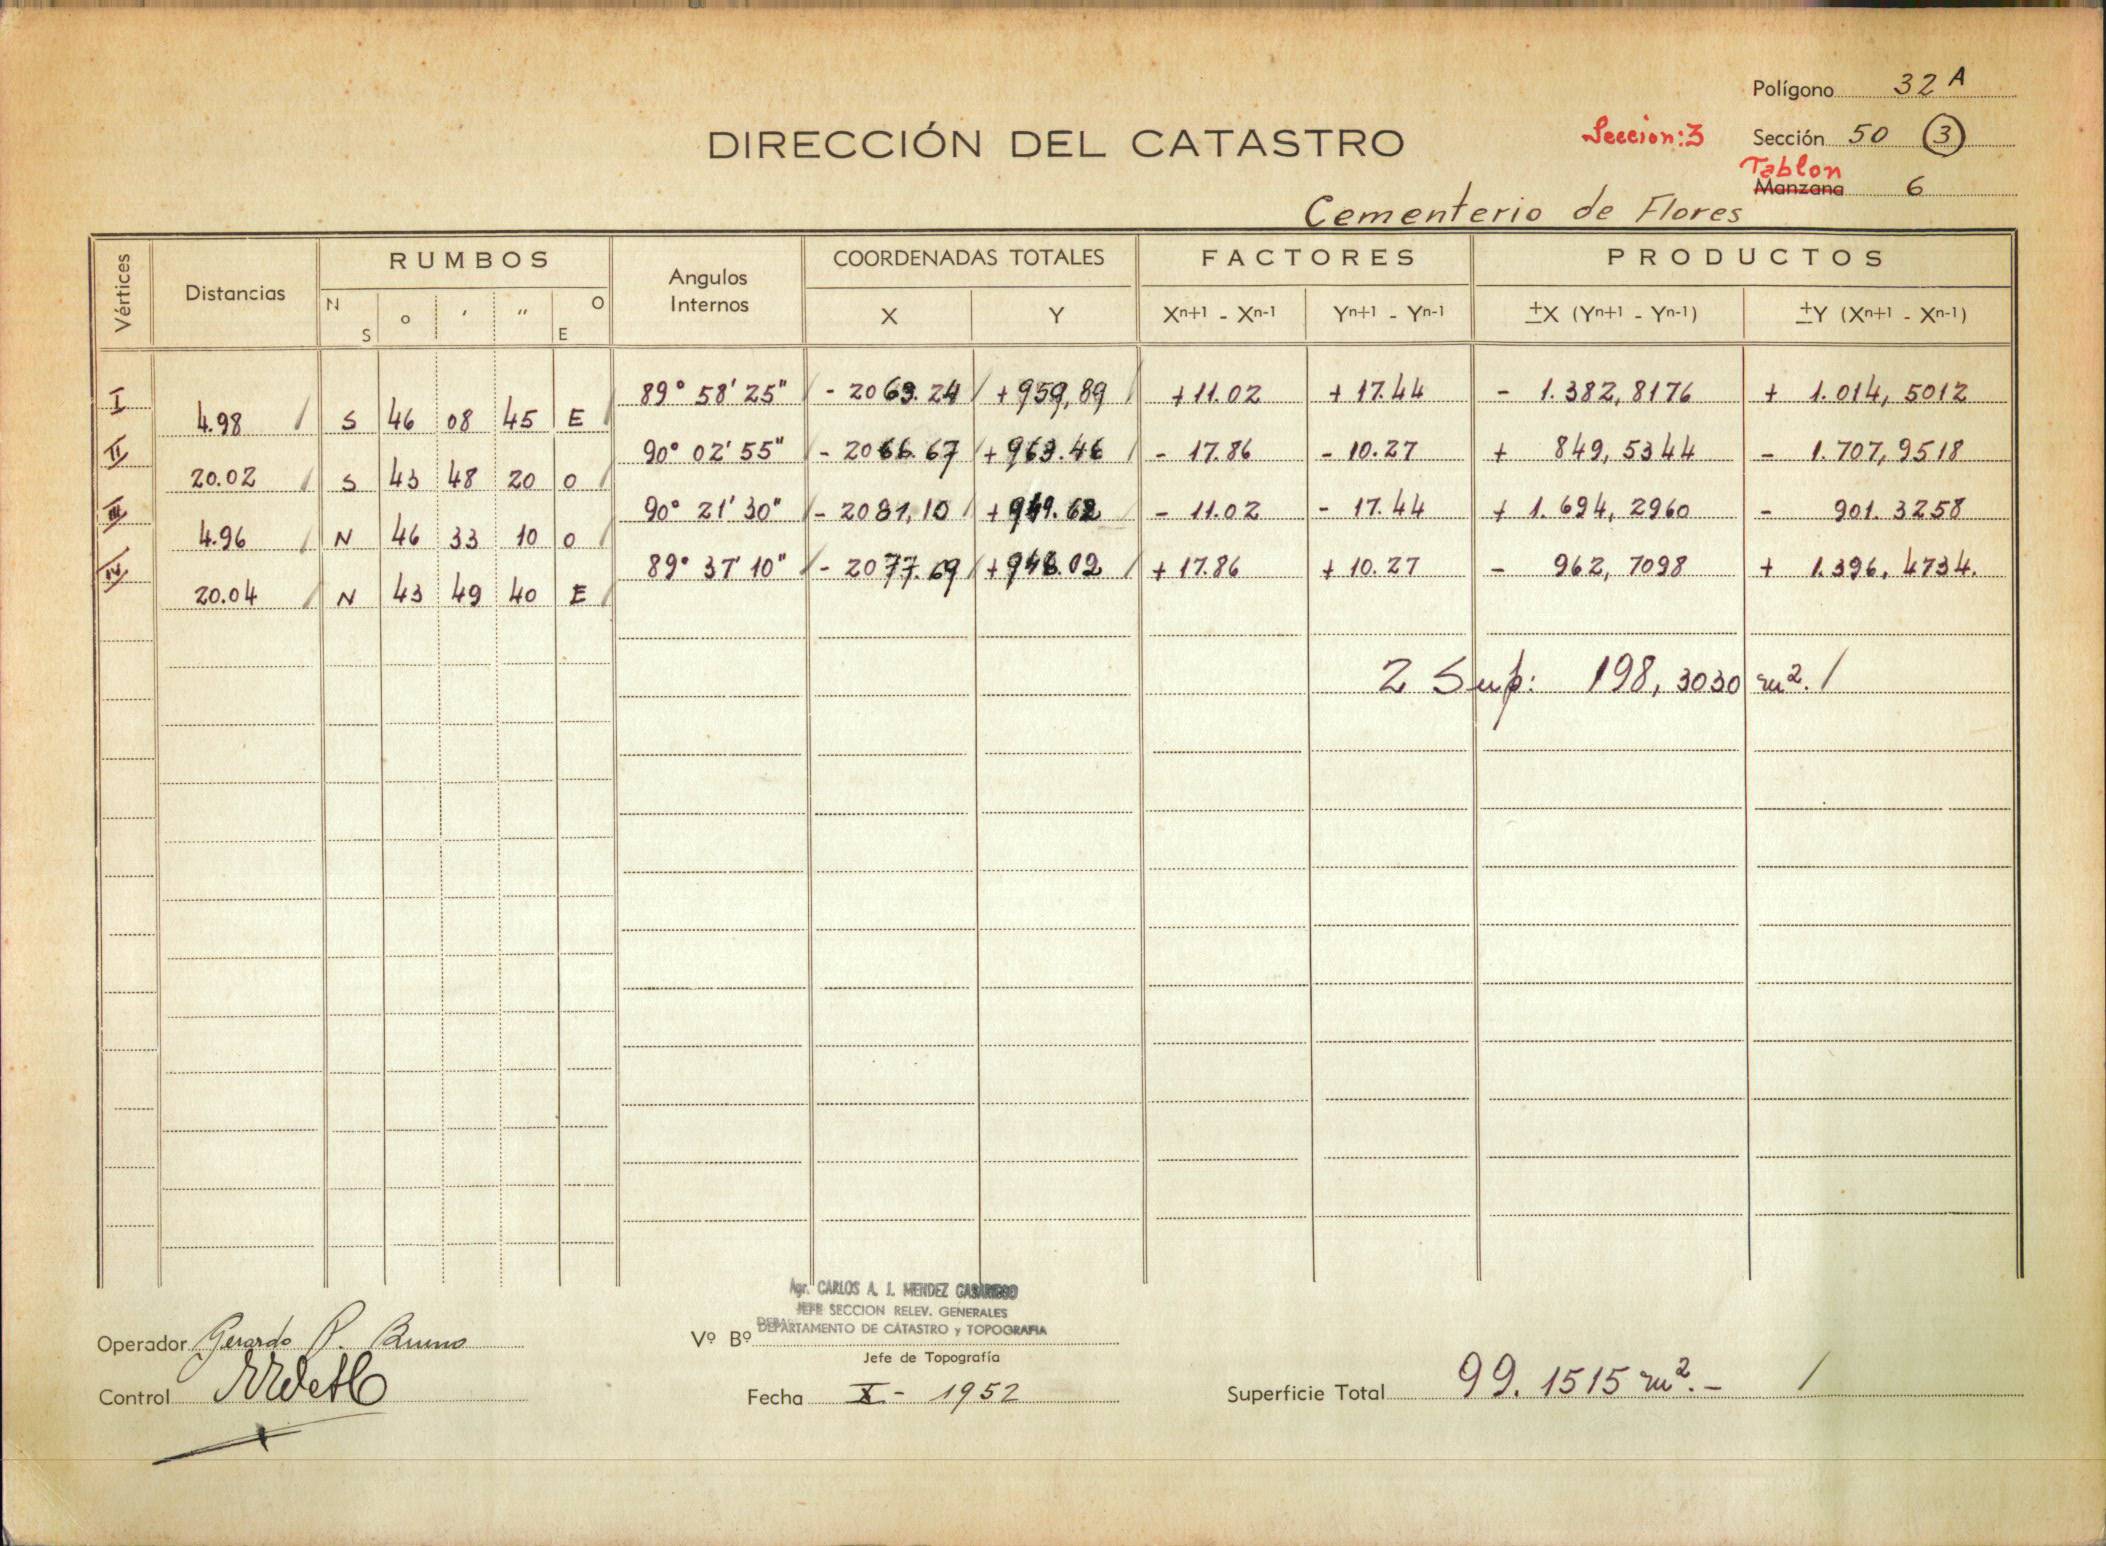 Polígono 32 A
DIRECCIÓN DEL CATASTRO
Seccion:3 Sección 50 3
Tablon
Manzana 6
Cementerio de Flores
Vértices Distancias RUMBOS Angulos Internos COORDENADAS TOTALES FACTORES PRODUCTOS
N S o ' " O E X Y Xn+1 - Xn-1 Yn+1 - Yn-1 ±X (Yn+1 - Yn-1) ±Y (Xn+1 - Xn-1)
I 89° 58' 25" - 2063.24 + 959,89 + 11.02 + 17.44 - 1.382,8176 + 1.014,5012
4.98 S 46 08 45 E
II 90° 02' 55" - 2066.67 + 963.46 - 17.86 - 10.27 + 849,5344 - 1.707,9518
20.02 S 43 48 20 O
III 90° 21' 30" - 2081,10 - 11.02 - 17.44 + 1.694,2960 - 901.3258
4.96 N 46 33 10 O
IV 89° 37' 10" - 2077.69 + 17.86 + 10.27 - 962,7098 + 1.396,4734.
20.04 N 43 49 40 E
2 Sup: 198,3030 m². /
Agr. CARLOS A. J. MENDEZ CASARIEGO
JEFE SECCION RELEV. GENERALES
DEPARTAMENTO DE CATASTRO y TOPOGRAFIA
Operador Gerardo P. Bruno Vº Bº
Jefe de Topografía
Control Fecha X - 1952 Superficie Total 99.1515 m².- /